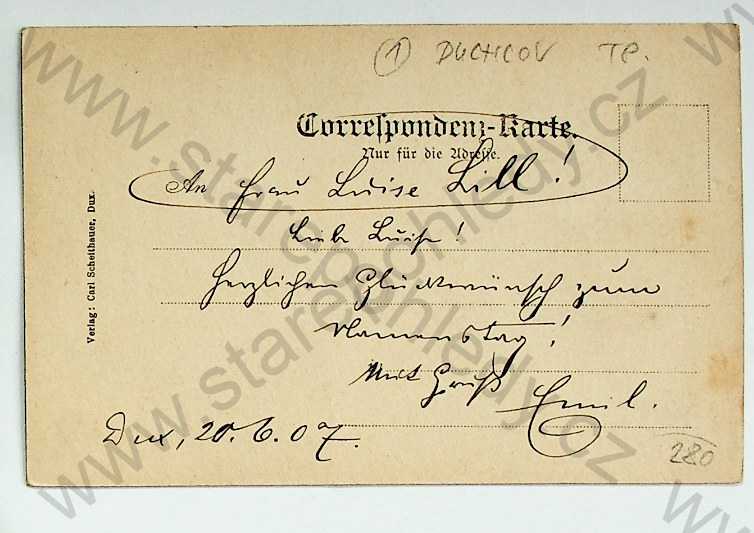 1 DUCHCOV TP.
Correspondenz-Karte.
Nur für die Adresse.
An Frau Luise Lill!
Liebe Luise!
Herzlichen Glückwünsch zum
Namenstag!
Mit Gruß
Emil.
Dux, 20.6.07.
280
Verlag: Carl Scheithauer, Dux.
www.starepohledy.cz